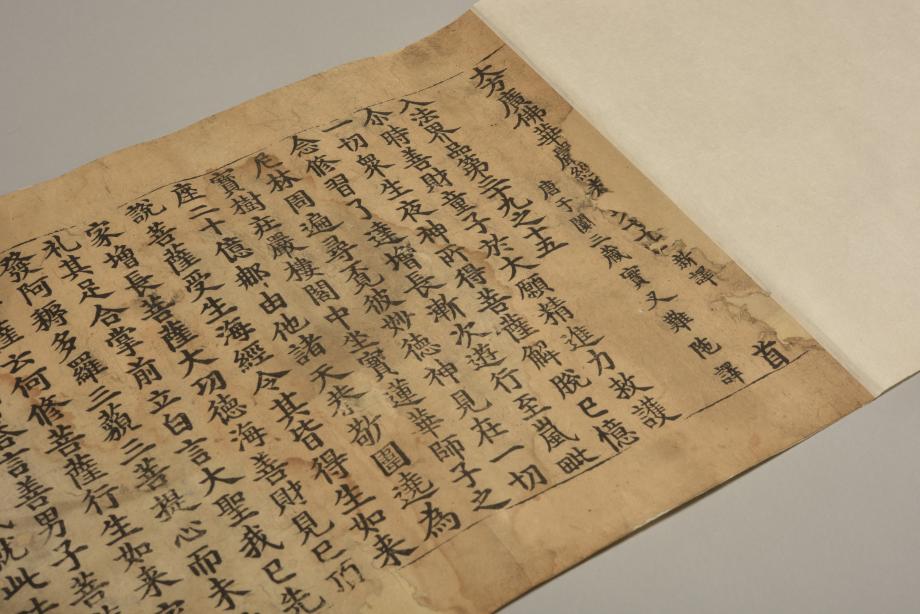 大方廣佛華嚴經卷 新譯 首
唐于闐三藏實叉難陁譯
入法界品第三十九之十五
尒時善財童子於大願精進力救護
一切衆生夜神所得菩薩解脫已憶
念修習了達增長漸次遊行至嵐毗
尼林周遍尋覔彼妙德神見在一切
寶樹莊嚴樓閣中坐寶蓮華師子之
座二十億那由他諸天恭敬圍遶為
說菩薩受生海經令其皆得生如來
家增長菩薩大功德海善財見已頂
礼其足合掌前立白言大聖我已先
發阿耨多羅三藐三菩提心而未
云何修菩薩行生如來家
答言善男子菩
就此法